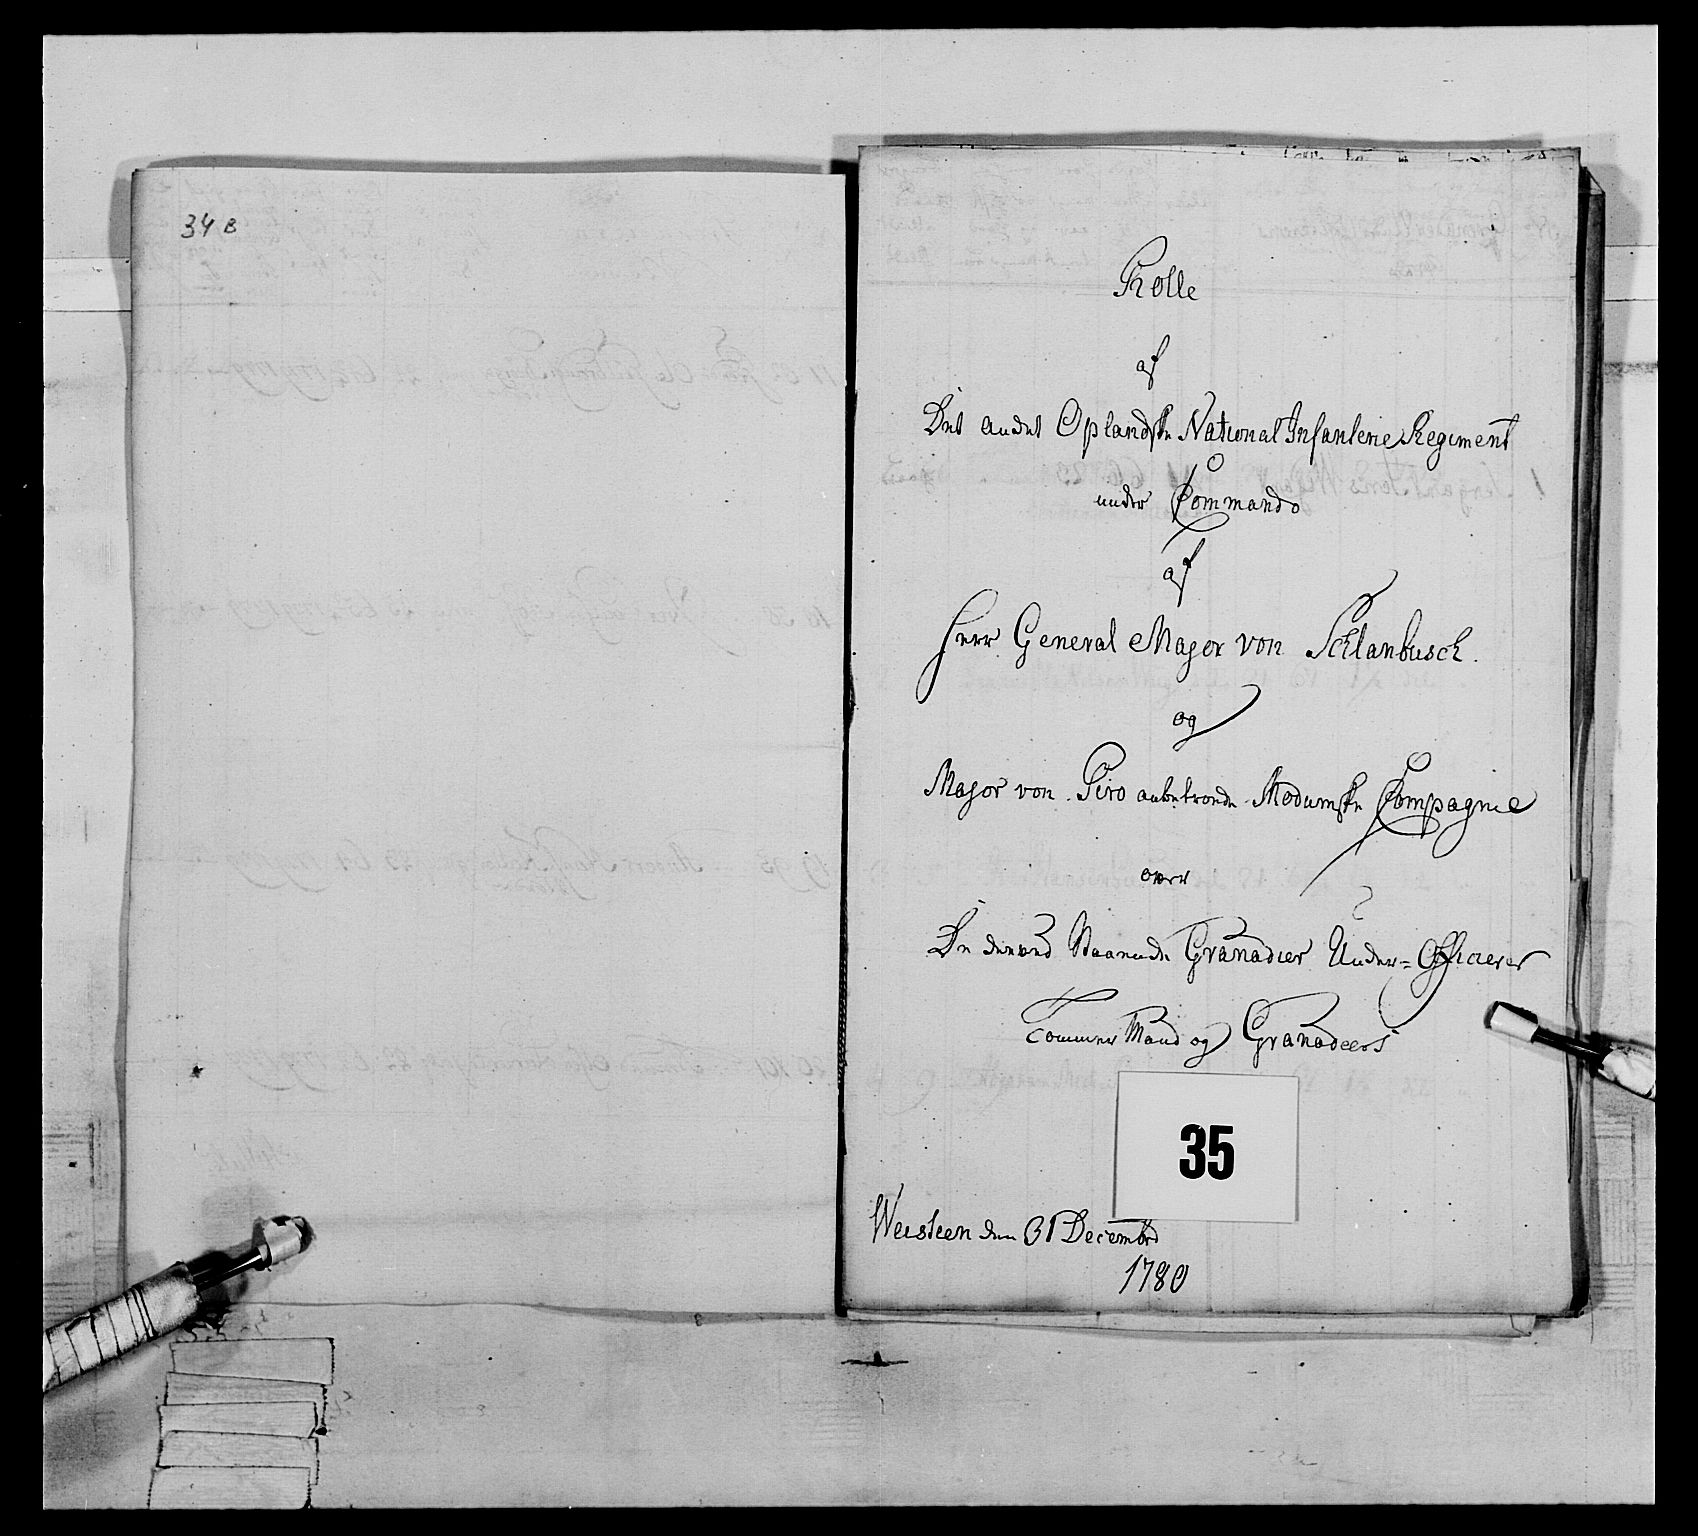 34 B
Rolle
af
Det andet Oplandske National Infanterie Regiment
under Commando
af
Herr General Major von Schlanbusch.
og
Major von Piro anbetroede Modumske Compagnie
over
De derved Staaende Granadier Under=Officierer
Tommer Mand og Granadeers
35
Weesteen den 31 Decembr
1780